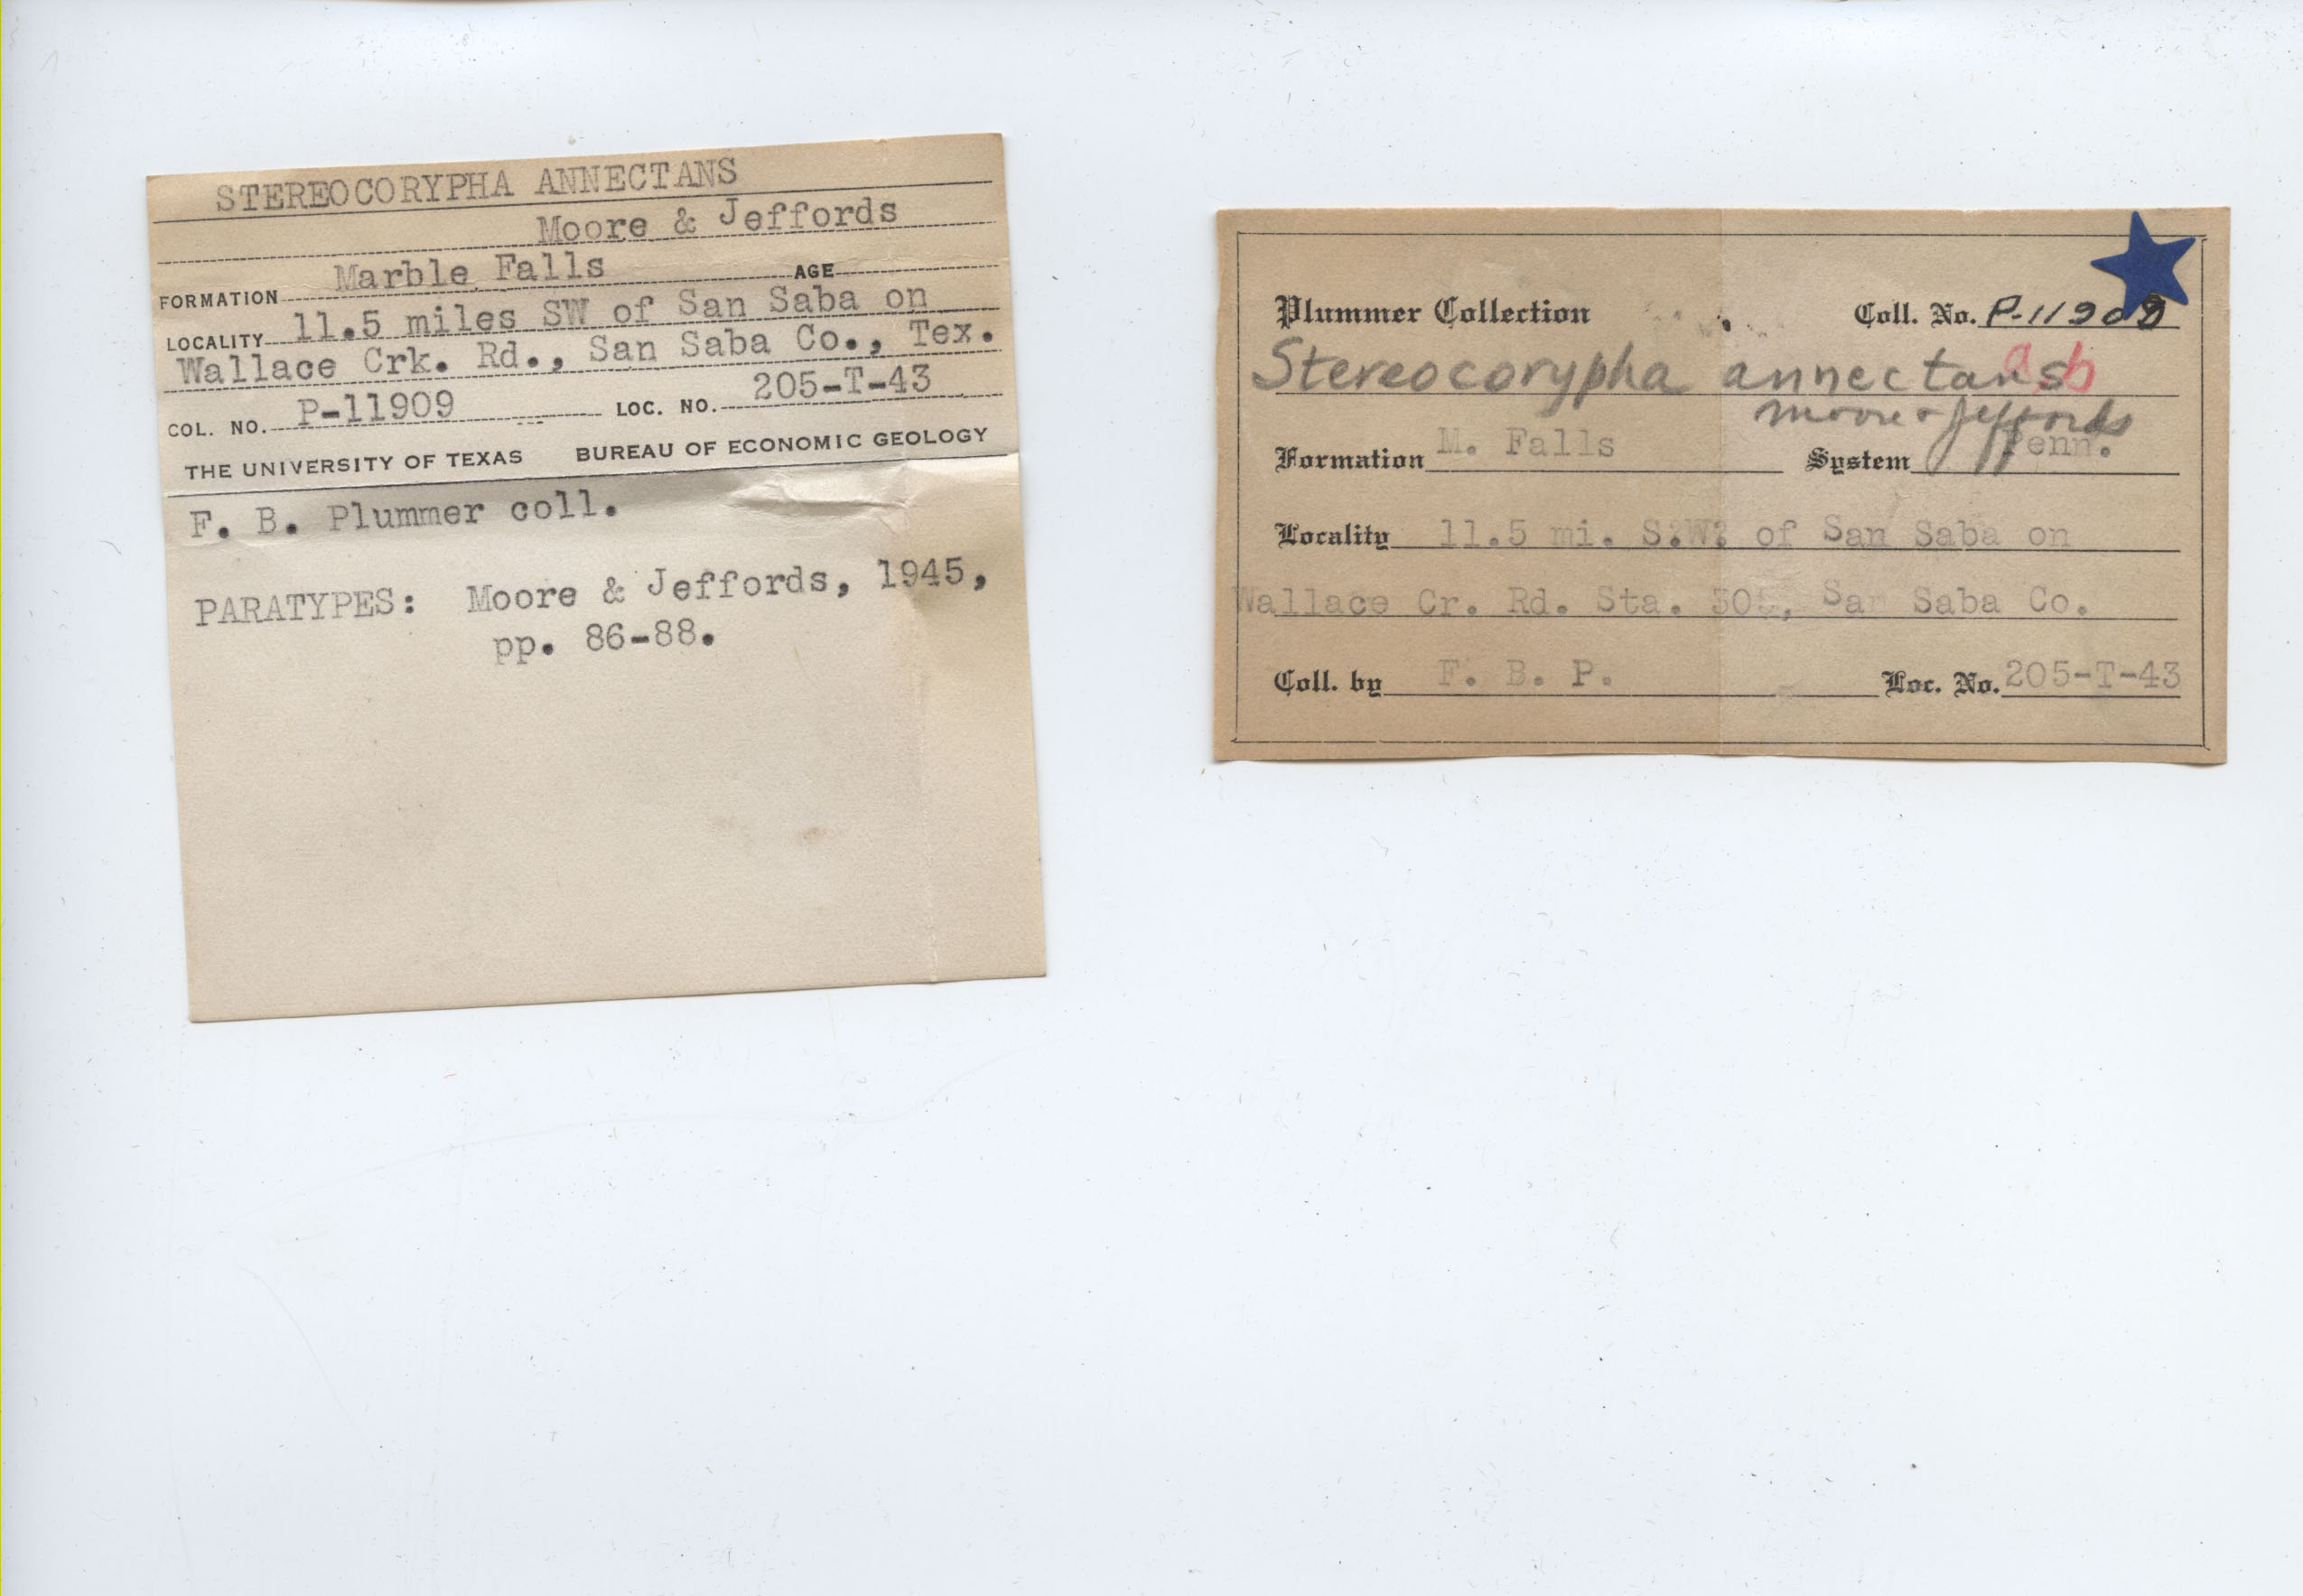 STEREOCORYPHA ANNECTANS
Moore & Jeffords
FORMATION Marble Falls AGE
LOCALITY 11.5 miles SW of San Saba on
Wallace Crk. Rd., San Saba Co., Tex.
COL. NO. P-11909 LOC. NO. 205-T-43
THE UNIVERSITY OF TEXAS BUREAU OF ECONOMIC GEOLOGY
F. B. Plummer coll.
PARATYPES: Moore & Jeffords, 1945,
pp. 86-88.
Plummer Collection Coll. No. P-11909
a, b
Stereocorypha annectans
Moore & Jeffords
Formation M. Falls System Penn.
Locality 11.5 mi. S?W? of San Saba on
Wallace Cr. Rd. Sta. San Saba Co.
Coll. by F. B. P. Loc. No. 205-T-43